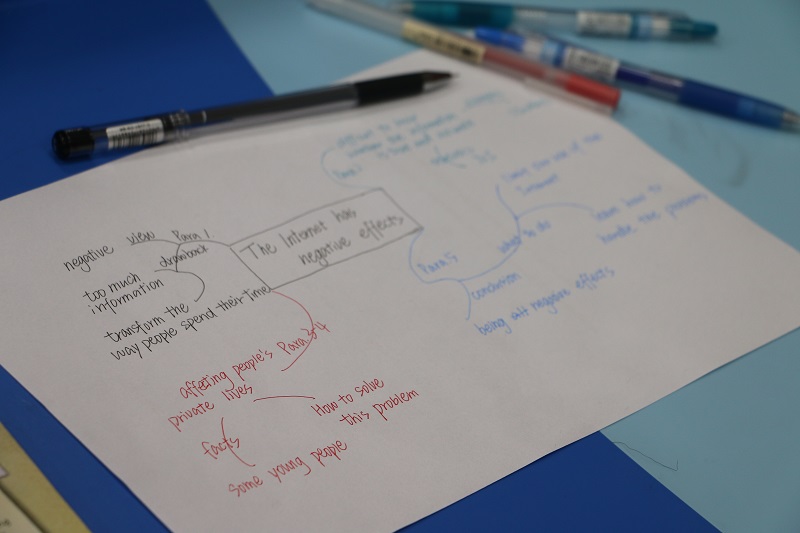 The Internet has
negative effects
Para 1
negative view
drawback
too much
information
transform the
way people spend their time
Para 3-4
affecting people's
private lives
How to solve
this problem
facts
some young people
Para 5
what to do
Internet
learn how to
handle the problems
conclusion
being negative effects